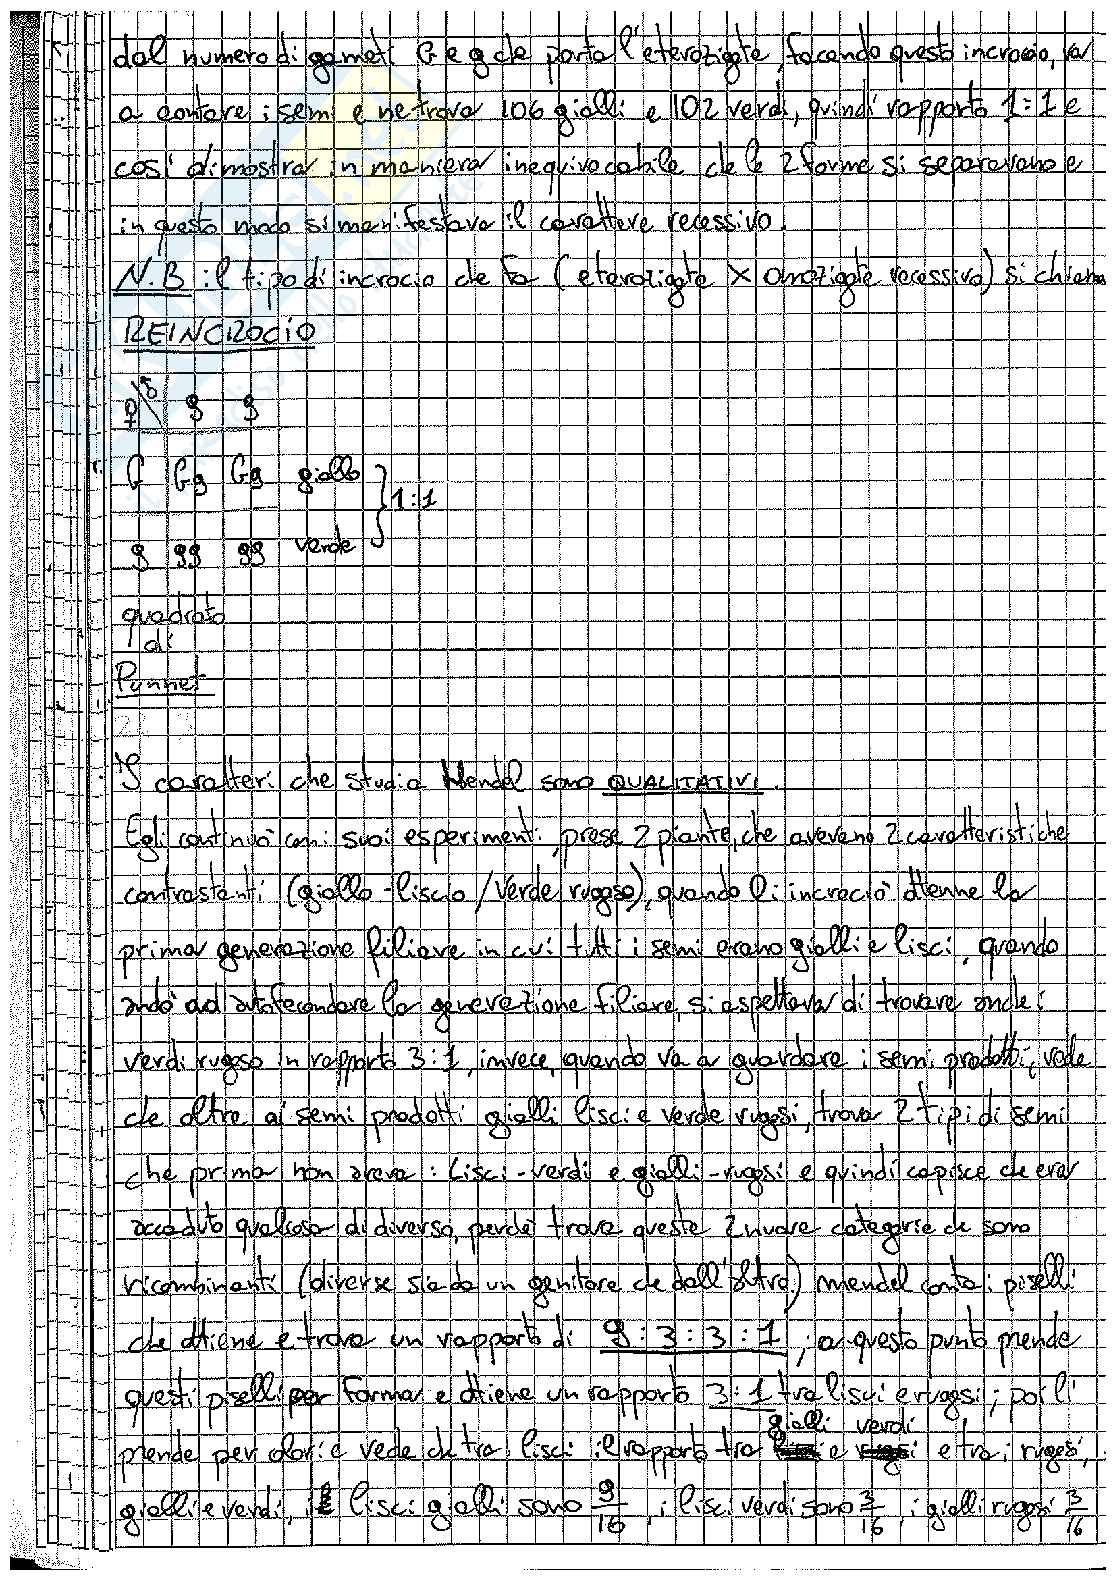 dal numero di gameti G e g che porta l'eterozigote, facendo questo incrocio, va
a contare i semi e ne trova 106 gialli e 102 verdi, quindi rapporto 1:1 e
così dimostra in maniera inequivocabile che le 2 forme si separavano e
in questo modo si manifestava il carattere recessivo.
N.B : il tipo di incrocio che fa (eterozigote X omozigote recessivo) si chiama
REINCROCIO
♀ \ ♂ g g
G Gg Gg giallo
1:1
g gg gg verde
quadrato
di
Punnet
I caratteri che studia Mendel sono QUALITATIVI.
Egli continuò con i suoi esperimenti, prese 2 piante, che avevano 2 caratteristiche
contrastanti (giallo-liscio / Verde rugoso), quando li incrociò ottenne la
prima generazione filiare in cui tutti i semi erano gialli e lisci, quando
andò ad autofecondare la generazione filiare, si aspettava di trovare anche i
verdi rugoso in rapporto 3:1, invece, quando va a guardare i semi prodotti, vede
che oltre ai semi prodotti gialli lisci e verde rugosi, trova 2 tipi di semi
che prima non aveva : Lisci-verdi e gialli-rugosi e quindi capisce che era
accaduto qualcosa di diverso, perchè trova queste 2 nuove categorie che sono
ricombinanti (diverse sia da un genitore che dall'altro) mendel conta i piselli
che ottiene e trova un rapporto di 9:3:3:1 ; a questo punto prende
questi piselli per forma e ottiene un rapporto 3:1 tra lisci e rugosi ; poi li
prende per colori e vede che tra i lisci il rapporto tra gialli e verdi e tra i rugosi,
gialli e verdi, i lisci gialli sono 9/16, i lisci verdi sono 3/16, i gialli rugosi 3/16